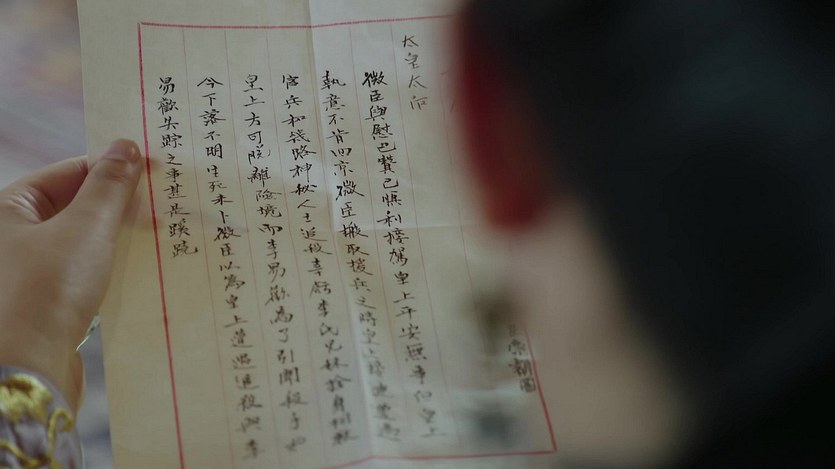 太皇太后
微臣與慰巴贊已順利接駕皇上平安無事但皇上
執意不肯回京微臣搬取援兵之時皇上
官兵和幾路神秘人士追殺幸舒李氏兄妹捨身相救
皇上方可脫離險境而李易歡為了引開殺手如
今下落不明生死未卜微臣以為皇上遭遇追殺與李
易歡失踪之事甚是蹊蹺